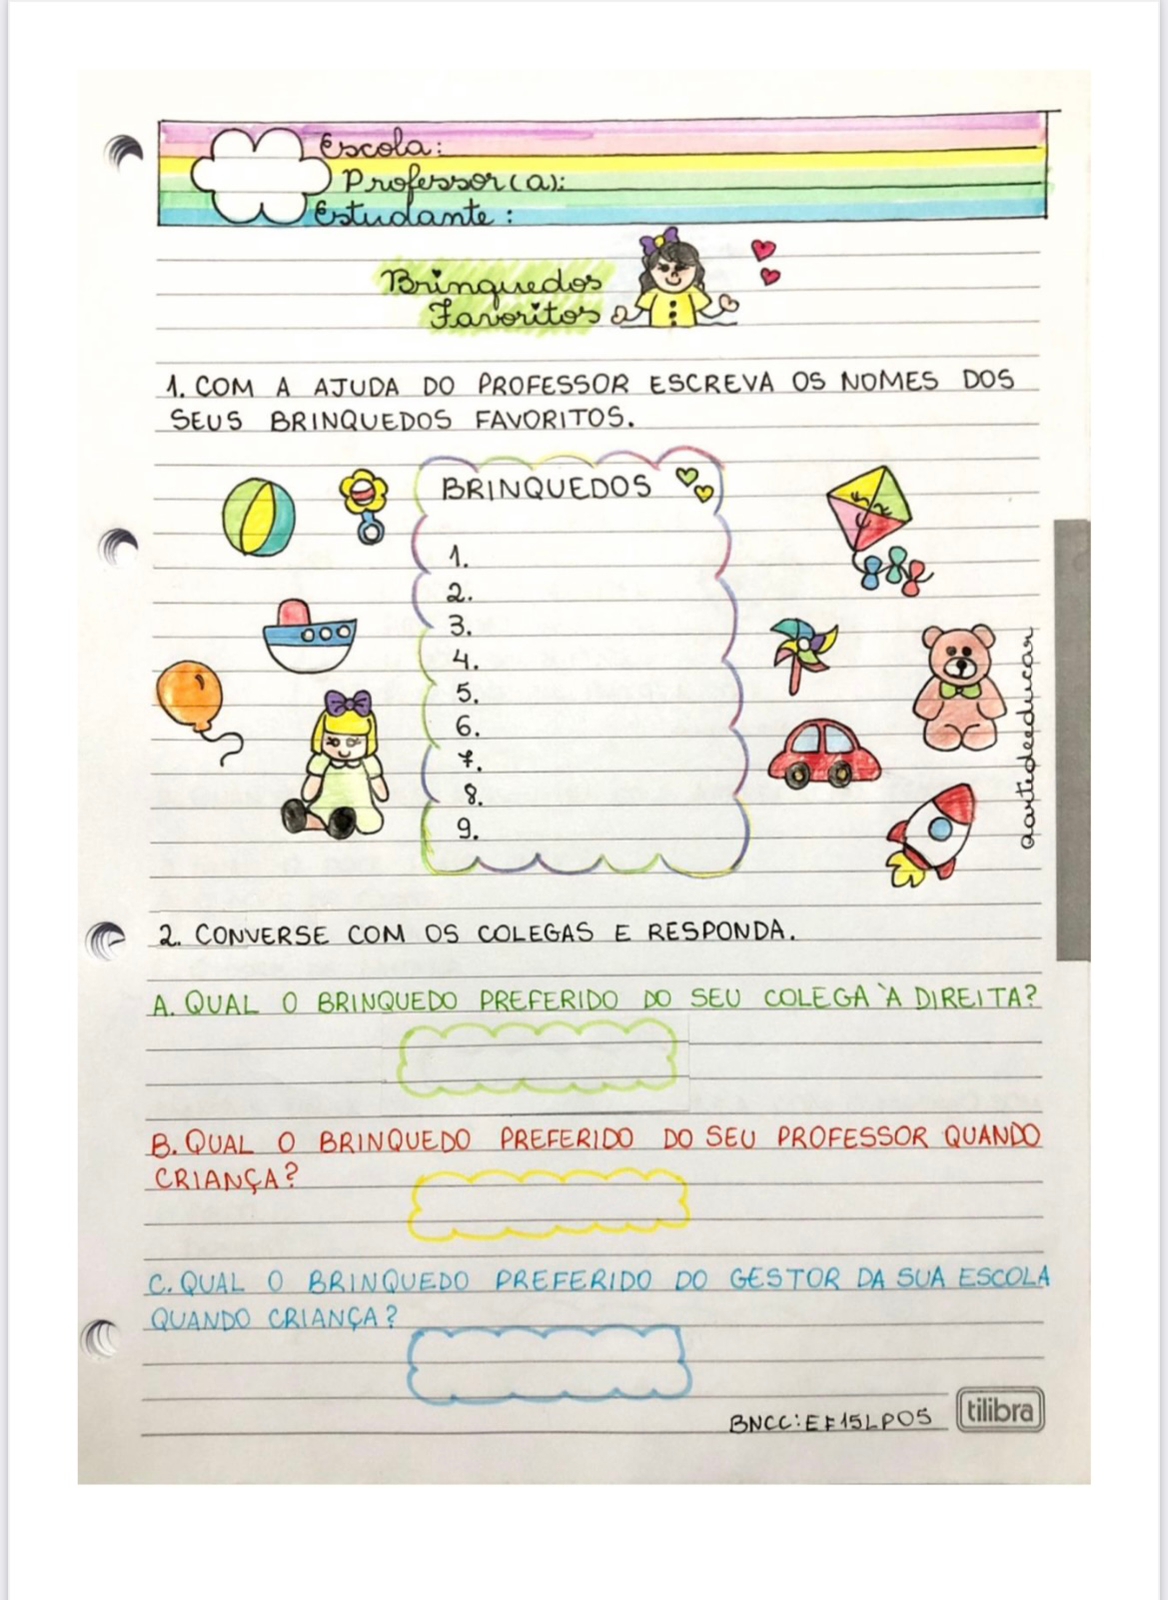 Escola:
Professor(a):
Estudante:
Brinquedos
Favoritos
1. COM A AJUDA DO PROFESSOR ESCREVA OS NOMES DOS
SEUS BRINQUEDOS FAVORITOS.
BRINQUEDOS
1.
2.
3.
4.
5.
6.
7.
8.
9.
aartedeeducar
2. CONVERSE COM OS COLEGAS E RESPONDA.
A. QUAL O BRINQUEDO PREFERIDO DO SEU COLEGA `A DIREITA?
B. QUAL O BRINQUEDO PREFERIDO DO SEU PROFESSOR QUANDO
CRIANÇA?
C. QUAL O BRINQUEDO PREFERIDO DO GESTOR DA SUA ESCOLA
QUANDO CRIANÇA?
BNCC: EF15LP05
tilibra